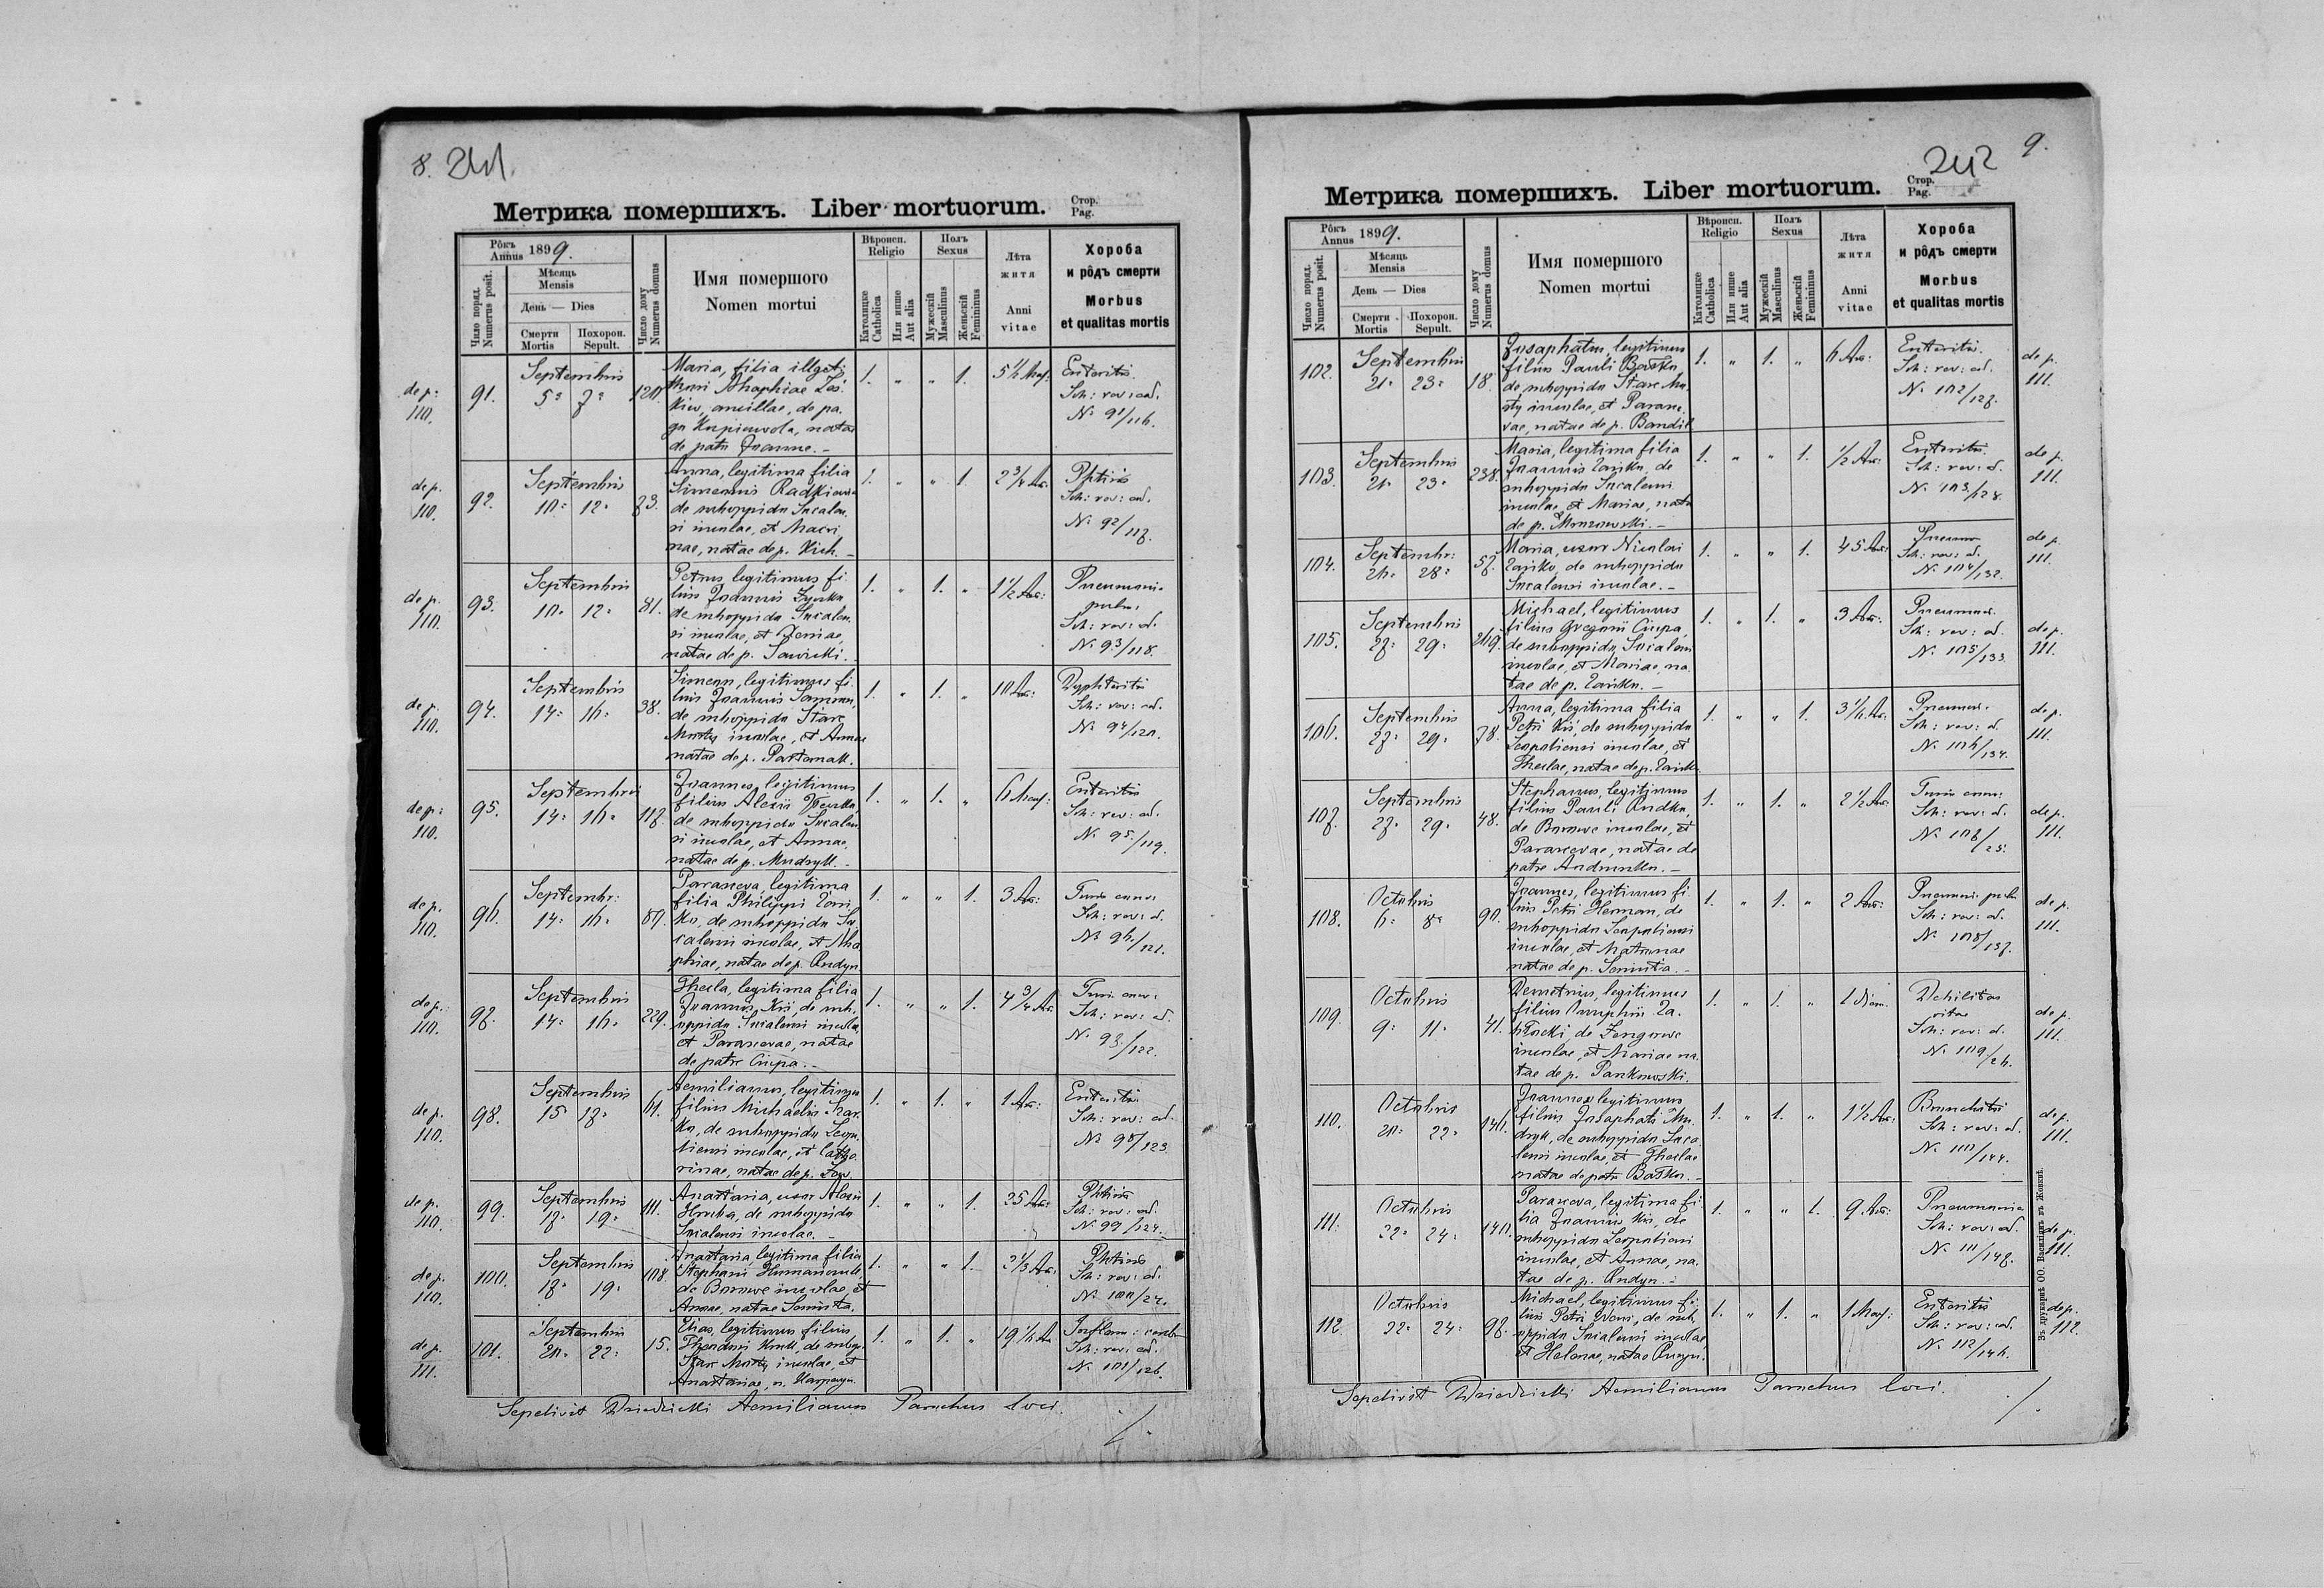 8. 241.
Метрика помершихъ. Liber mortuorum. Стор. Pag.
Рôкъ Annus 1899.
Мѣсяць Mensis
День — Dies
Смерти Mortis
Похорон. Sepult.
Число поряд. Numerus posit.
Число дому Numerus domus
Имя помершого
Nomen mortui
Вѣроисп. Religio
Католицке Catholica
Или инше Aut alia
Полъ Sexus
Мужескій Masculinus
Женьскій Femininus
Лѣта житя
Anni vitae
Хороба и рôдъ смерти
Morbus et qualitas mortis
de p. 110. 91. Septembris 5. 7. 120.
Maria, filia illgeti
ancillae, de pa
natae
de patre Joanne. –
1. " " 1. 5 1/2
Enteritis.
Sch: rev: ad.
№ 91/116.
de p. 110. 92. Septembris 10. 12. 73.
Anna, legitima filia
Simeonis Radkiewicz
de suboppido Sucalen
si incolae, et Macri
nae, natae de p. Kich. –
1. " " 1. 2 3/4 An:
Phtisis
Sch: rev: ad.
№ 92/117.
de p. 110. 93. Septembris 10. 12. 81.
Petrus legitimus fi
lius Joannis
de suboppido Sucalen
si incolae, et Xeniae,
natae de p. Sawicki. –
1. " 1. " 1 1/2 An:
Pneumonia
pulm:
Sch: rev: ad.
№ 93/118.
de p. 110. 94. Septembris 14. 16. 38.
Simeon, legitimus fi
lius Joannis
de suboppido Stare
Miasty incolae, et Annae
natae de p. Pasternak.
1. " 1. " 10 An:
Dyphteritis
Sch: rev: ad.
№ 94/120.
de p. 110. 95. Septembris 14. 16. 117.
Joannes, legitimus
filius Alexii
de suboppido Sucalen
si incolae, et Annae,
natae de p. Mudryk. –
1. " 1. " 6
Enteritis
Sch: rev: ad.
№ 95/119.
de p. 110. 96. Septembr: 14. 16. 89.
Parasceva, legitima
filia Philippi Zańi
ko, de suboppido Su
calensi incolae, et
phiae, natae de p. Rudyn
1. " " 1. 3 An:
Tussis conv:
Sch: rev: ad.
№ 96/121.
de p. 110. 97. Septembris 14. 16. 229.
Thecla, legitima filia
Joannis Kis, de sub
oppido Sucalensi incolae,
et Parascevae, natae
de patre Ciupa. –
1. " " 1. 4 3/4 An:
Tussis conv:
Sch: rev: ad.
№ 97/122.
de p. 110. 98. Septembris 15 17. 61.
Aemilianus, legitimus
filius Michaelis
ko, de suboppido Leopo
liensi incolae, et Catha
rinae, natae de p.
1. " 1. " 1 An:
Enteritis
Sch: rev: ad.
№ 98/123.
de p. 110. 99. Septembris 17. 19. 111.
Anastasia, uxor Alexii
Hruba, de suboppido
Sucalensi incolae. –
1. " " 1. 25 An:
Phtisis
Sch: rev: ad.
№ 99/124.
de p. 110. 100. Septembris 17. 19. 108.
Anastasia, legitima filia
Stephani
incolae, et
Annae, natae Seniuta.
1. " " 1. 2 1/3 An:
Phtisis
Sch: rev: ad.
№ 100/24.
de p. 111. 101. Septembris 20. 22. 15.
Elias, legitimus filius
Theodori
Stare Miasty incolae, et
Anastasiae, n.
1. " 1. " 19
Inflam:
Sch: rev: ad.
№ 101/126.
Sepelivit Dziedzicki Aemilianus Parochus loci.
242 9.
Метрика помершихъ. Liber mortuorum. Стор. Pag.
Рôкъ Annus 1899.
Мѣсяць Mensis
День — Dies
Смерти Mortis
Похорон. Sepult.
Число поряд. Numerus posit.
Число дому Numerus domus
Имя помершого
Nomen mortui
Вѣроисп. Religio
Католицке Catholica
Или инше Aut alia
Полъ Sexus
Мужескій Masculinus
Женьскій Femininus
Лѣта житя
Anni vitae
Хороба и рôдъ смерти
Morbus et qualitas mortis
102. Septembris 21. 23. 18.
Josaphatus, legitimus
filius Pauli Baśko,
de suboppido Stare Mia
sty incolae, et Parasce
vae, natae de p.
1. " 1. " 6 An:
Enteritis.
Sch: rev: ad.
№ 102/127.
de p. 111.
103. Septembris 21. 23. 238.
Maria, legitima filia
Joannis Zańko, de
suboppido Sucalensi
incolae, et Mariae, nata
de p.
1. " " 1. 1/2 An:
Enteritis.
Sch: rev: ad.
№ 103/128.
de p. 111.
104. Septembr: 26. 28. 57.
Maria, uxor Nicolai
Zańko, de suboppido
Sucalensi incolae. –
1. " " 1. 45 An:
Pneumon
Sch: rev: ad.
№ 104/132.
de p. 111.
105. Septembris 27. 29. 219.
Michael, legitimus
filius Gregorii Ciupa,
de suboppido Sucalensi
incolae, et Mariae, na
tae de p. Zańko. –
1. " 1. " 3 An:
Pneumon.
Sch: rev: ad.
№ 105/133.
de p. 111.
106. Septembris 27. 29. 78.
Anna, legitima filia
Petri Kis, de suboppido
Leopoliensi incolae, et
Theclae, natae de p. Zańko.
1. " " 1. An:
Pneumon.
Sch: rev: ad.
№ 106/134.
de p. 111.
107. Septembris 27. 29. 48.
Stephanus, legitimus
filius Pauli Rudko,
incolae, et
Parascevae, natae de
patre
1. " 1. " 2 1/2 An:
Tussis conv:
Sch: rev: ad.
№ 107/25.
de p. 111.
108. Octobris 6. 8. 90.
Joannes, legitimus fi
lius Petri Herman, de
suboppido Leopoliensi
incolae, et Matronae
natae de p. Seniuta. –
1. " 1. " 2 An:
Pneumon. pulm
Sch: rev: ad.
№ 108/137.
de p. 111.
109. Octobris 9. 11. 41.
Demetrius, legitimus
filius Onuphrii Za
incolae, et Mariae na
tae de p. Pankowski.
1. " 1. " 1 diem.
Debilitas
vitae
Sch: rev: ad.
№ 109/26.
de p. 111.
110. Octobris 20. 22. 146.
Joannes legitimus
filius Josaphati Mu
dryk, de suboppido Suca
lensi incolae, et Theclae
natae de patre Baśko. –
1. " 1. " 1 1/2 An:
Bronchitis
Sch: rev: ad.
№ 110/144.
de p. 111.
111. Octobris 22. 24. 140.
Parasceva, legitima fi
lia Joannis Kis, de
suboppido Leopoliensi
incolae, et Annae, na
tae de p. Rudyn. –
1. " " 1. 9 An:
Pneumonia
Sch: rev: ad.
№ 111/147.
de p. 111.
112. Octobris 22. 24. 97.
Michael, legitimus fi
lius Petri de sub
oppido Sucalensi incolae,
et Helenae, natae
1. " 1. " 1
Enteritis
Sch: rev: ad.
№ 112/146.
de p. 112.
Sepelivit Dziedzicki Aemilianus Parochus loci.
Зъ друкарнѣ ОО. Василіянъ въ Жовквѣ.